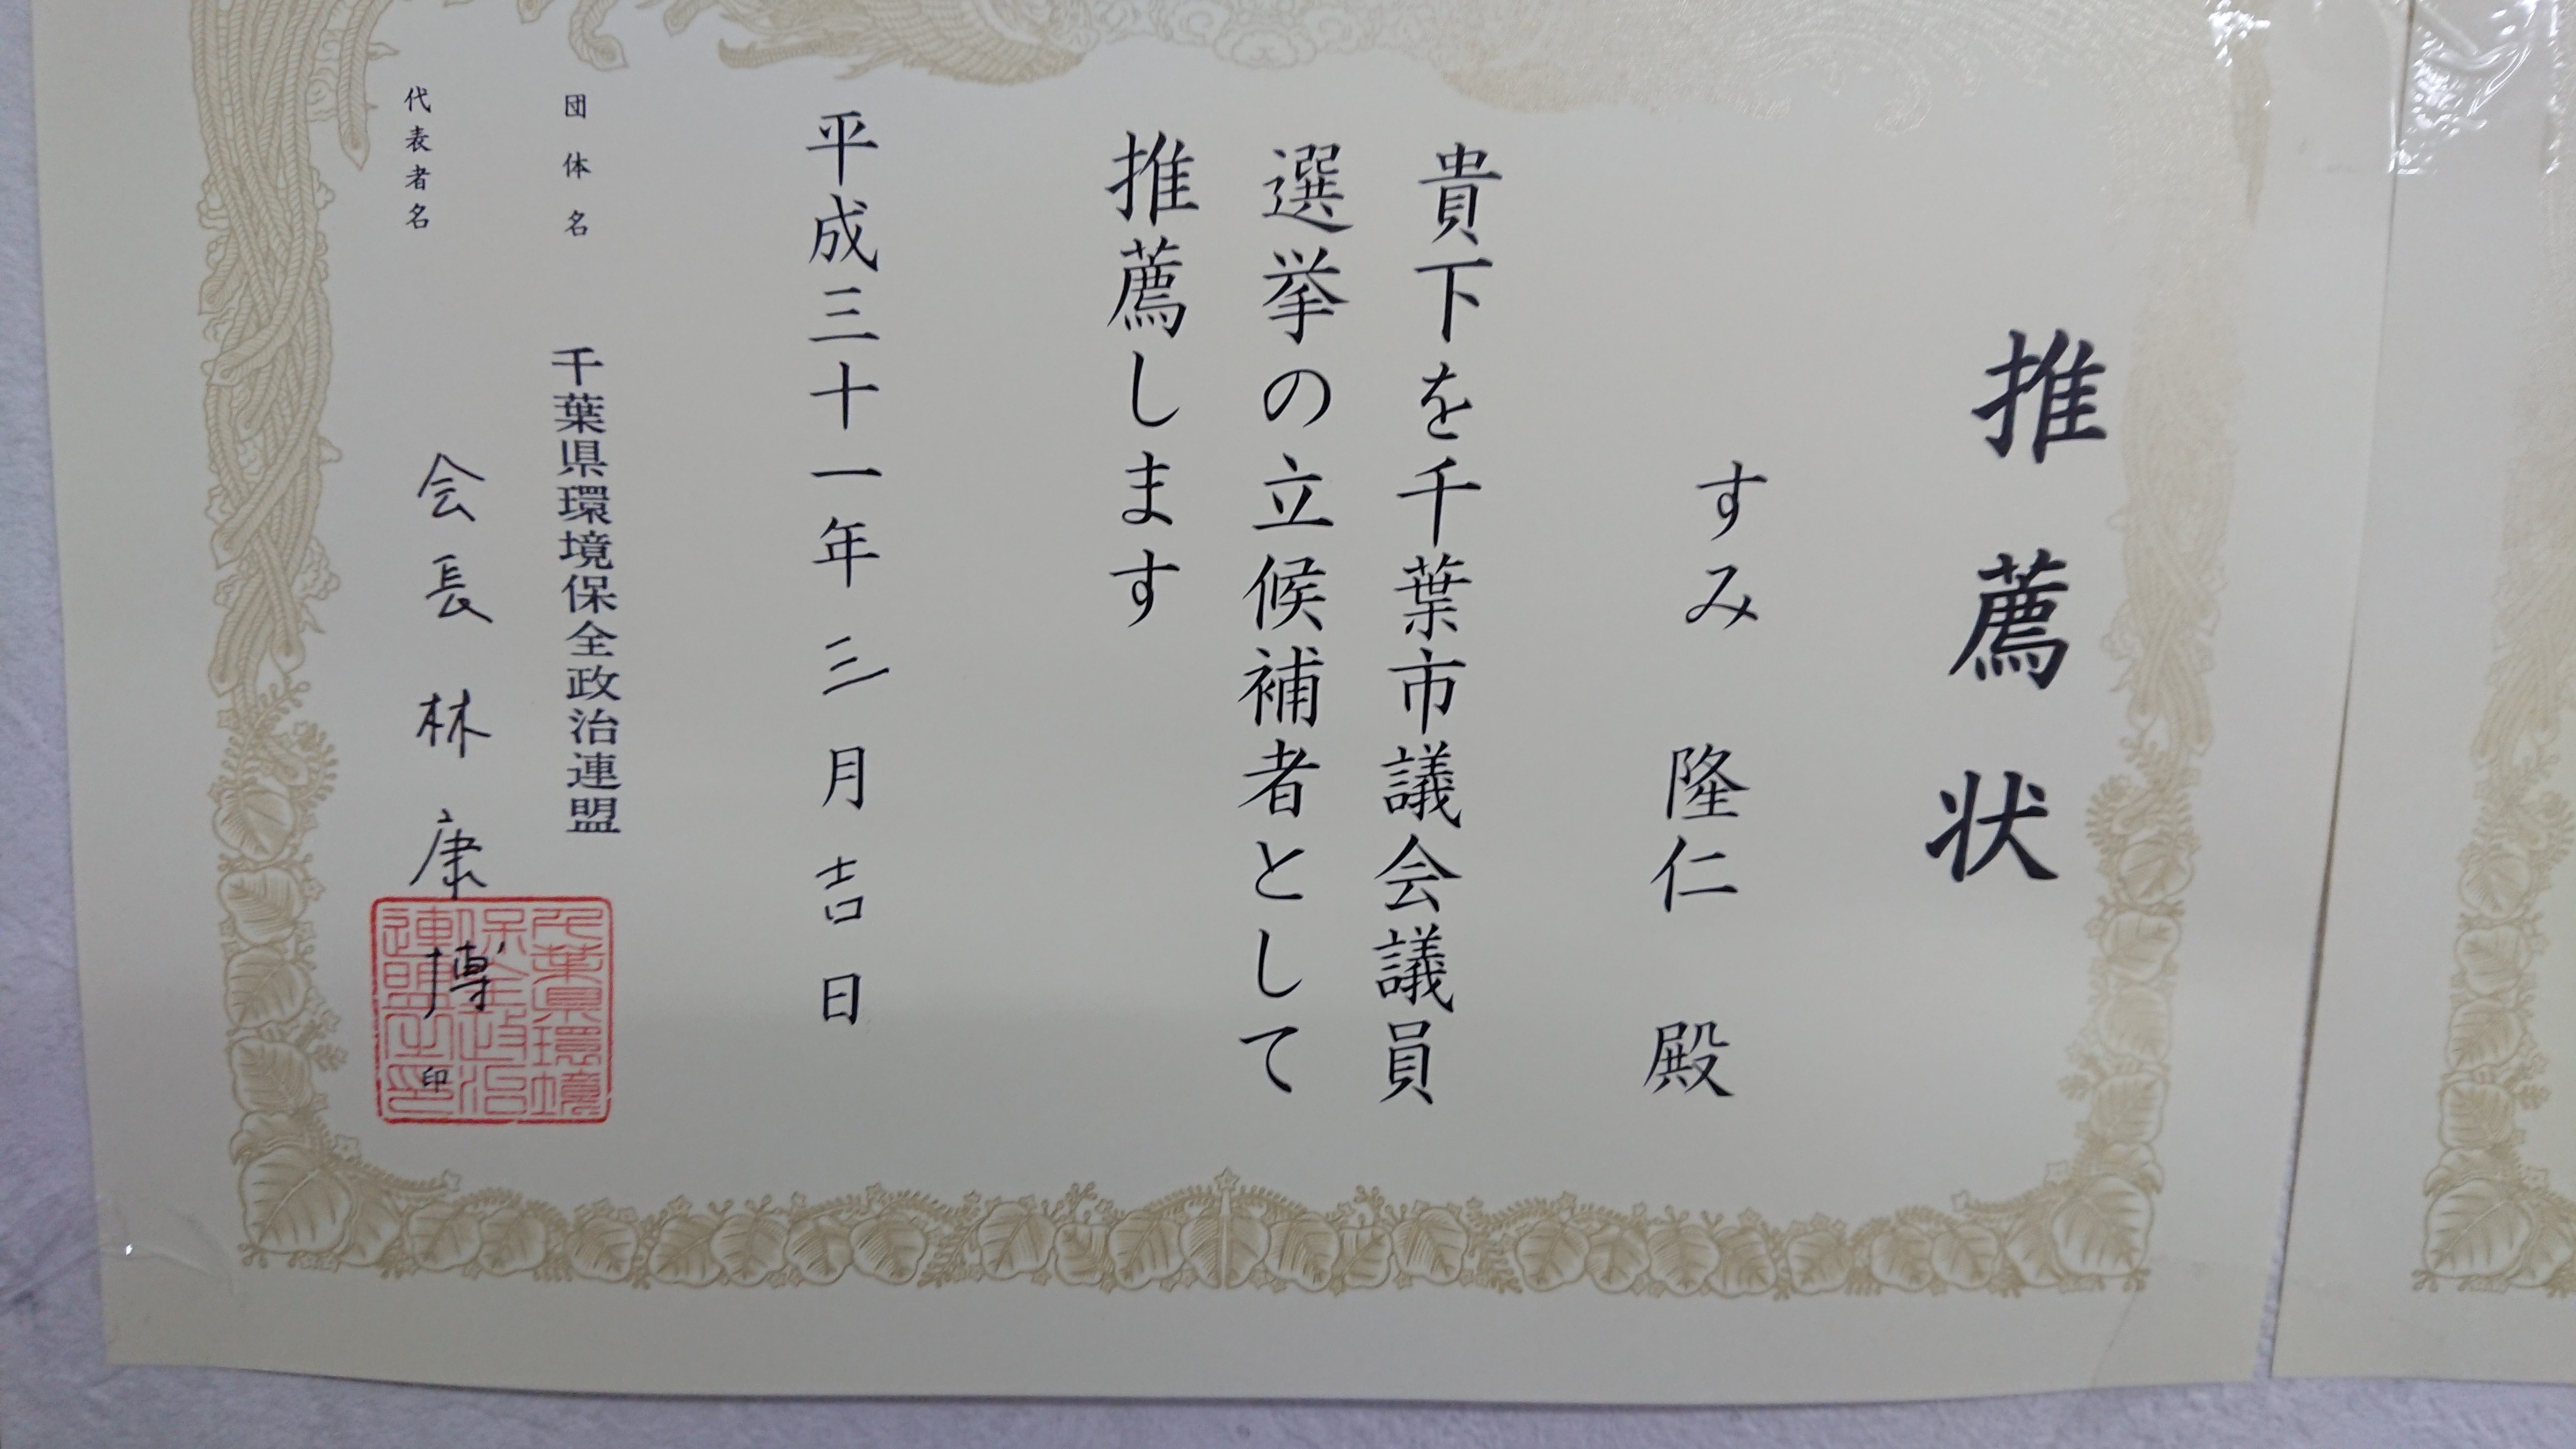 推薦状
すみ 隆仁 殿
貴下を千葉市議会議員
選挙の立候補者として
推薦します
平成三十一年 三 月 吉 日
団体名 千葉県環境保全政治連盟
代表者名 会長 林 康博 印
千葉県環境
保全政治
連盟之印